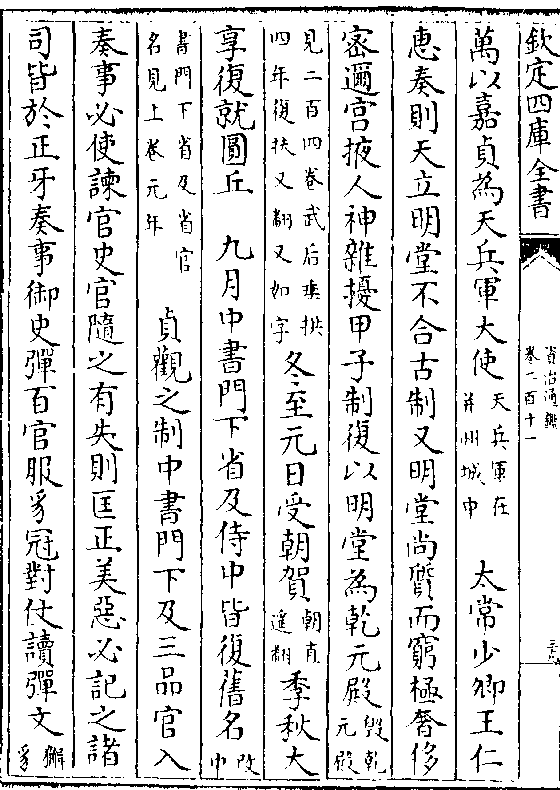 欽定四庫全書
資治通鑑
卷二百十一
萬以嘉貞為天兵軍大使天兵軍在并州城中 太常少卿王仁
惠奏則天立明堂不合古制又明堂尚質而窮極奢侈
密邇宮掖人神雜擾甲子制復以明堂為乾元殿毀乾元殿
見二百四卷武后垂拱四年復扶又翻又如字冬至元日受朝賀朝直遙翻季秋大
享復就圜丘 九月中書門下省及侍中皆復舊名改中
書門下省及省官名見上卷元年 貞觀之制中書門下及三品官入
奏事必使諫官史官隨之有失則匡正美惡必記之諸
司皆於正牙奏事御史彈百官服豸冠對仗讀彈文獬豸